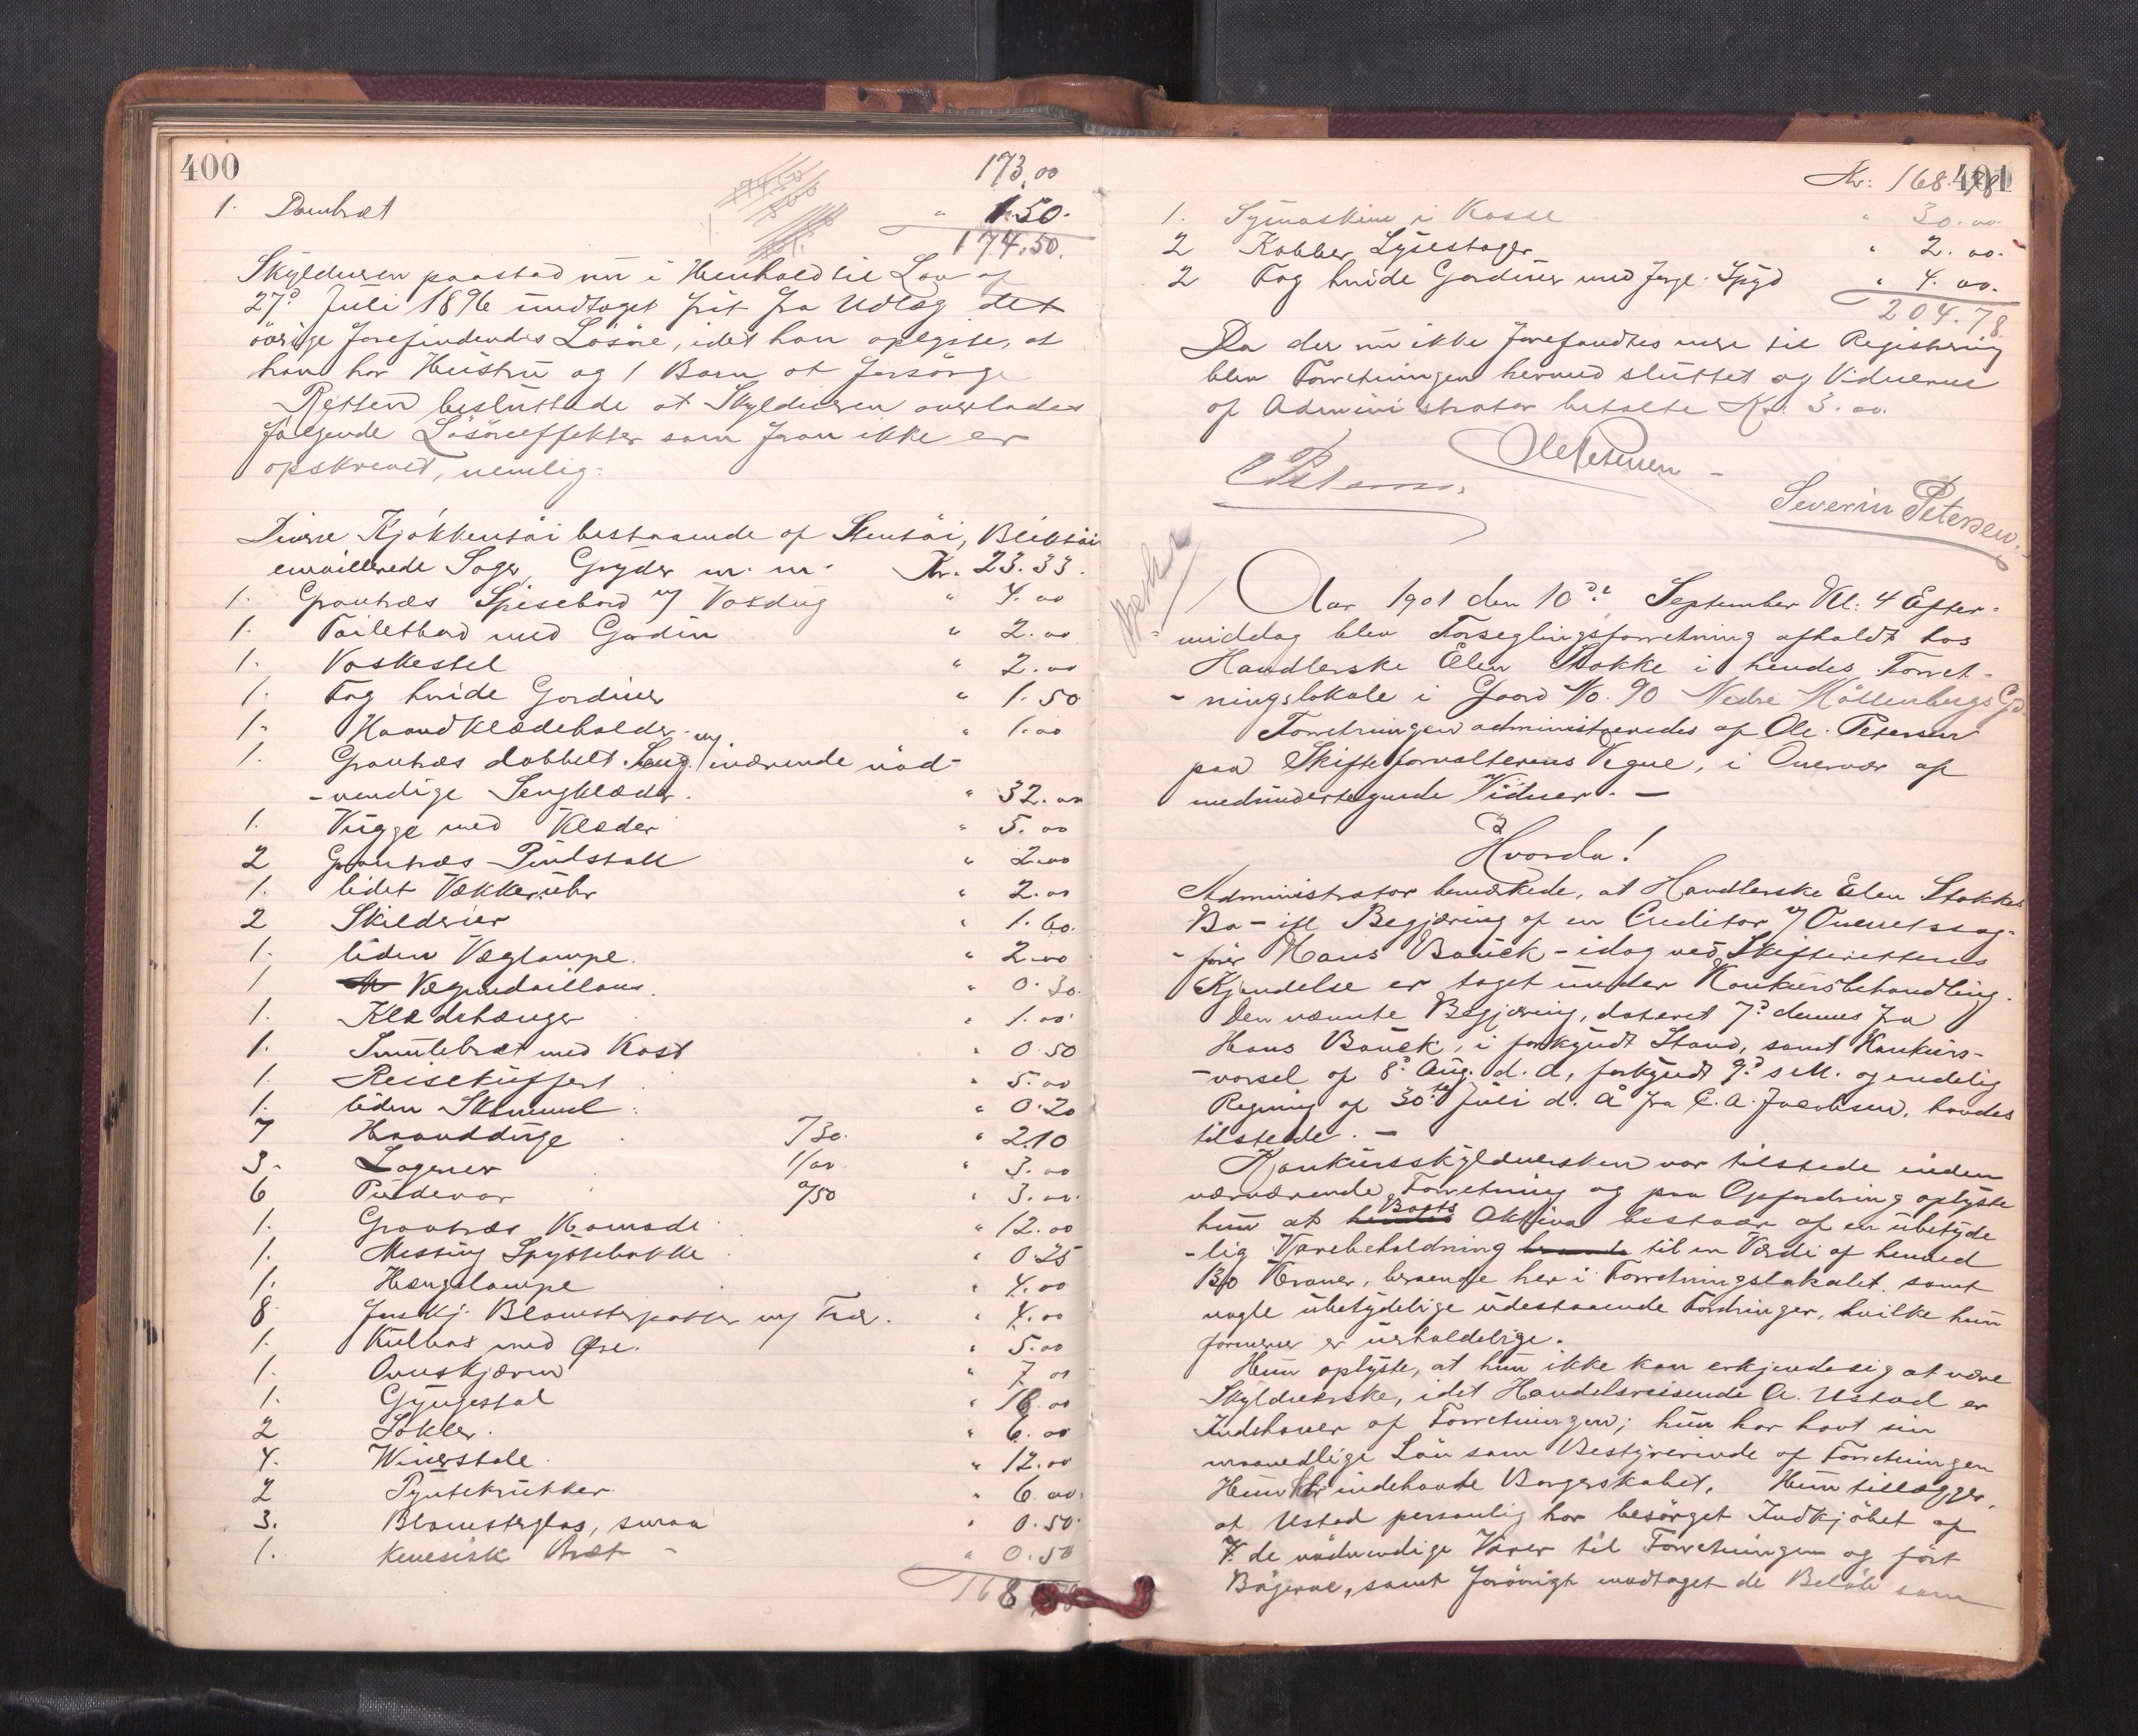 400
173.00
1. Dambræt " 1.50.
174.50.
Skyldneren paastod nu i Henhold til Lov af
27de Juli 1896 undtaget frit fra Udlæg det
övrige forefindendes Lösöre, idet han oplyste, at
han har Hustru og 1 Barn at forsörge
Retten besluttede at Skyldneren overlades
fölgende Lösöreeffekter som foran ikke er
opskrevet, nemlig:
Diverse Kjökkentöi bestaaende af Stentöi, Bliktöi
emaillerede Sager, Gryder m. m. Kr. 23.33.
1. Grantræs Spisebord m/ Voxdug " 4.00
1. Toiletbord med Gardin " 2.00
1. Vaskestel " 2.00
1. Fag hvide Gardiner " 1.50
1. Haandklædeholder " 1.00
1. Grantræs dobbelt Seng m/ iværende nöd-
-vendige Sengklæder. " 32.00
1. Vugge med Klæder " 5.00
2 Grantræs Pindstole " 2.00
1. lidet Vækkeruhr " 2.00
2 Skilderier " 1.60.
1. liden Væglampe. " 2.00
1 " 0.30.
1. Klædehænger " 1.00
1. Smulebræt med Kost " 0.50
1. Reisekuffert " 5.00
1. liden Skammel " 0.20
7 Haandduge 7/30. " 2.10
3. Lagener 1/00 " 3.00
6 Pudevar 0/50 " 3.00.
1. Grantræs Komode " 12.00
1. Messing Spyttebakke " 0.25
1. Hængelampe " 4.00
8 Blomsterpotter m/ Trær. " 4.00
1. Kulbox med Öse. " 5.00
1. Ovnskjærm " 7.00
1. Gyngestol " 16.00
2 Sokler. " 6.00
4. Wienerstole. " 12.00
2 Pyntekrukker. " 6.00.
3. Blomsterglas, smaa " 0.50
1. kinesisk Bræt - " 0.50
168.78
401
Kr: 168.78
1. Symaskine i Kasse " 30.00
2 Kobber Lysestager " 2.00.
2 Fag hvide Gardiner med Spyd " 4.00.
204.78
Da der nu ikke forefandtes mere til Registrering
blev Forretningen hermed sluttet og Vidnerne
af Administrator betalte Kr. 3.00.
Ole Petersen -
Severin Petersen.
Aar 1901 den 10de September Kl: 4 Efter-
middag blev Forseglingsforretning afholdt hos
Handlerske Elen Stokke i hendes Forret-
-ningslokale i Gaard No. 90 Nedre Möllenbergs Gd.
Forretningen administreredes af Ole Petersen
paa Skifteforvalterens Vegne, i Overvær af
medundertegnede Vidner. -
Hvorda!
Administrator bemærkede, at Handlerske Elen Stokkes
Bo - ifl Begjæring af en Creditor v/ Overretssag-
-förer Hans Bauck - idag ved Skifterettens
Kjendelse er taget under Konkursbehandling.
Den nævnte Begjæring, dateret 7de dennes fra
Hans Bauck, i forkyndt Stand, samt Konkurs-
-varsel af 8de Aug. d. A, forkyndt 9de s M. og endelig
Regning af 30te Juli d. Å fra C. A. Jacobsen, havdes
tilstede. -
Konkursskyldnersken var tilstede under
nærværende Forretning og paa Opfordring oplyste
hun at hendes Boets Aktiva bestaar af en ubetyde
-lig Varebeholdning til en Værdi af henved
130 Kroner, beroende her i Forretningslokalet samt
nogle ubetydelige udestaaende Fordringer, hvilke hun
formener er uerholdelige.
Hun oplyste, at hun ikke kan erkjende sig at være
Skyldnerske, idet Handelsreisende A. Ustad er
Indehaver af Forretningen; hun har havt sin
maanedlige Lön som Bestyrerinde af Forretningen
Hun indehavde Borgerskabet. Hun tillægger,
at Ustad personlig har besörget Indkjöbet af
de nödvendige Varer til Forretningen og fört
Bögerne, samt forövrigt modtaget de Belöb som